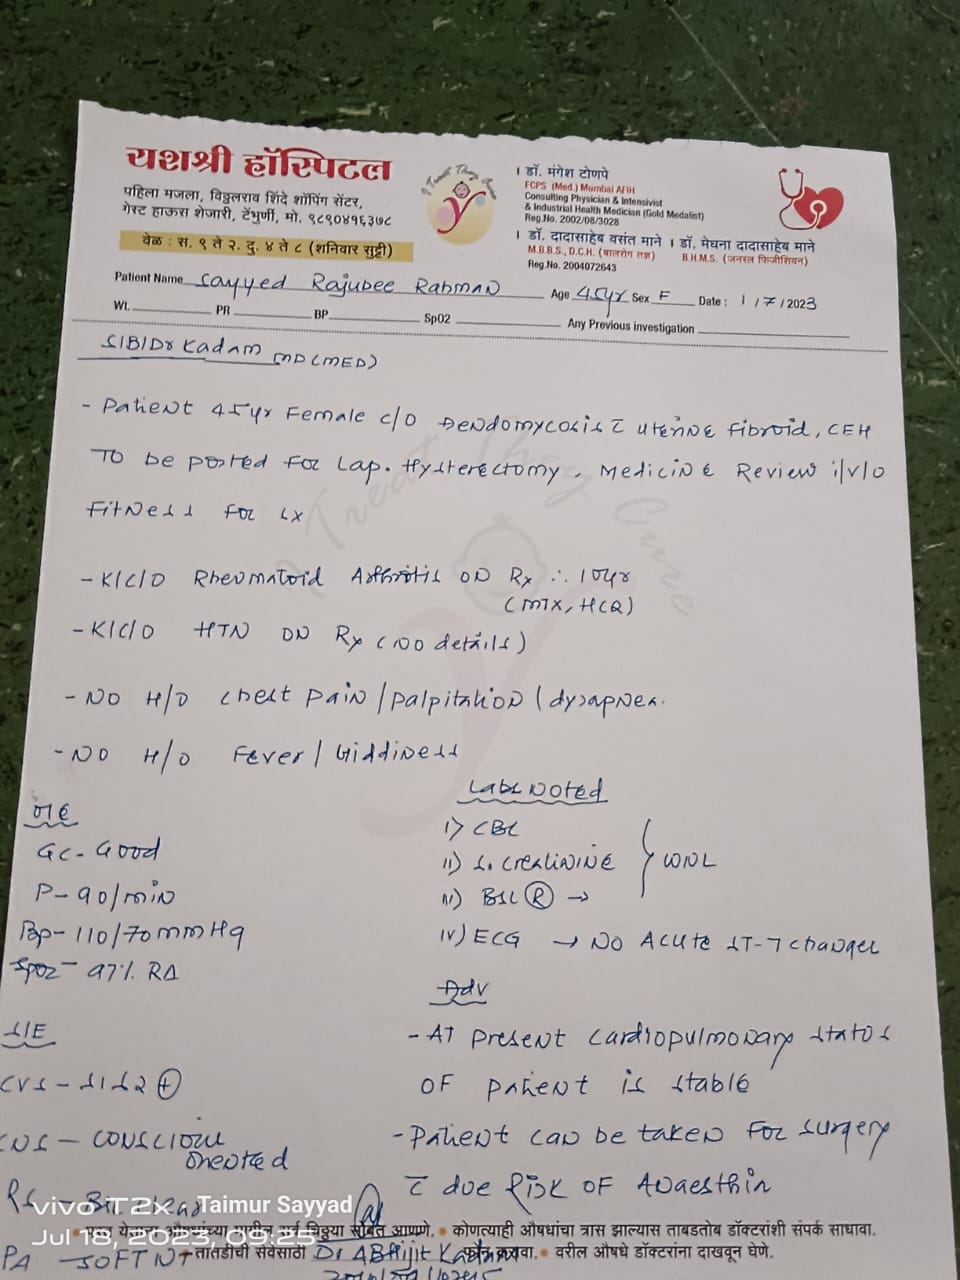 यशश्री हॉस्पिटल
पहिला मजला, विठ्ठलराव शिंदे शॉपिंग सेंटर,
गेस्ट हाऊस शेजारी, टेंभुर्णी, मो. ९८९०४९६३७८
वेळ : स. ९ ते २. दु. ४ ते ८ (शनिवार सुट्टी)
I Treat They Cure
डॉ. मंगेश टोणपे
FCPS (Med.) Mumbai AFIH
Consulting Physician & Intensivist
& Industrial Health Medician (Gold Medalist)
Reg.No. 2002/08/3028
डॉ. दादासाहेब वसंत माने । डॉ. मेघना दादासाहेब माने
M.B.B.S., D.C.H. (बालरोग तज्ञ) B.H.M.S. (जनरल फिजीशियन)
Reg.No. 2004072643
Patient Name Sayyed Rajubee Rahman Age 45yr Sex F Date : 1/7/2023
Wt. PR BP SpO2 Any Previous investigation
S/B/Dr Kadam MD(MED)
- Patient 45yr Female c/o uterine fibroid, CEH
To be posted for Lap. Hysterectomy. Medicine Review i/v/o
Fitness for Sx
- K/C/O Rheumatoid Arthritis on Rx ∴ 10yr
(MTX, HCQ)
- K/C/O HTN on Rx (no details)
- No H/O chest pain/palpitation/dyspnea.
- No H/o Fever/Giddiness
O/E
GC - Good
P - 90/min
Bp - 110/70 mmHg
Spo2 - 97% RA
Labs Noted
i) CBC
ii) S. creatinine } WNL
iii) BSL (R) →
iv) ECG → No Acute ST-T changes
S/E
CVS - S1S2 ⊕
CNS - conscious
oriented
RS - clear
PA - SOFT NT
Adv
- At present cardiopulmonary status
of patient is stable
- Patient can be taken for surgery
c̄ due Risk of Anaesthia
Dr Abhijit Kadam
औषधांच्या चिठ्ठया सोबत आणणे. • कोणत्याही औषधांचा त्रास झाल्यास ताबडतोब डॉक्टरांशी संपर्क साधावा.
तातडीची सेवेसाठी करावा. • वरील औषधे डॉक्टरांना दाखवून घेणे.
vivo T2x Taimur Sayyad
Jul 18, 2023, 09:25